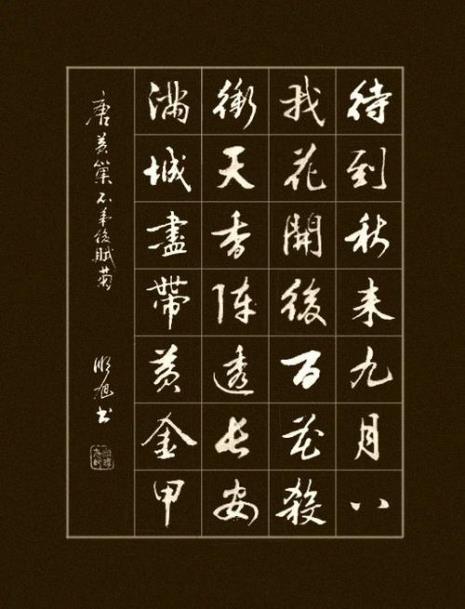 待到秋来九月八
我花開後百花殺
衝天香陣透長安
滿城盡帶黄金甲
唐黄巢不第後賦菊
旭書